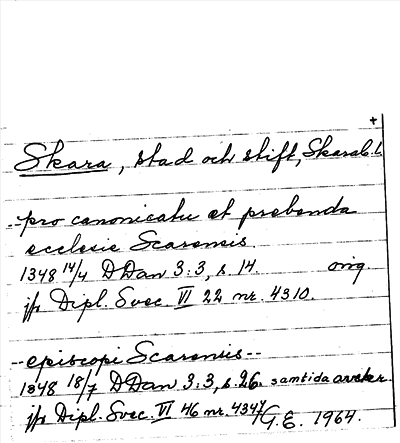 +
Skara, stad och stift, Skarab. l.
--pro canonicatu et prebenda
ecclesie Scarensis.
1348 14/4 DDan 3:3, s. 14. orig.
jfr Dipl. Svec. VI 22 nr. 4310.
--episcopi Scarensis--
1348 18/7 DDan 3:3, s. 26 samtida avskr.
jfr Dipl. Svec. VI 46 nr. 4344
G.E. 1964.